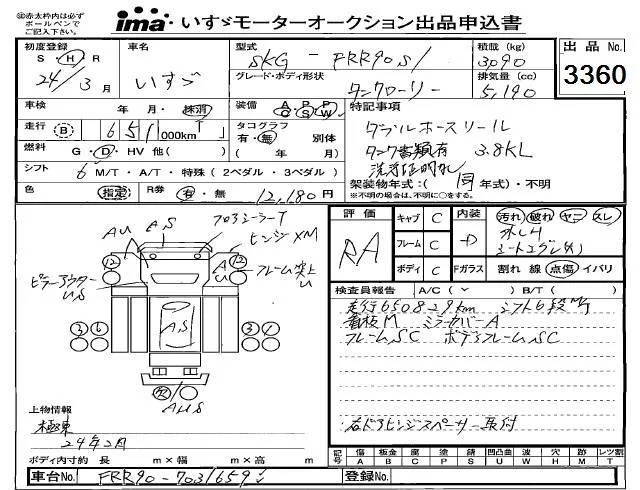 ◎赤太枠内は必ず
ボールペンで
ご記入下さい。
ima いすゞモーターオークション出品申込書
初度登録 車名 型式 積載 (kg) 出品 No.
S・H・R
24/3月 いすゞ SKG-FRR90S1 3090
グレード・ボディ形状 排気量 (cc)
タンクローリー 5,190
3360
車検 年・月・抹消 装備 A・P・P C・S・W 特記事項
走行 B 651,000km タコグラフ
有・無 別体
( 年 月)
ダブルホースリール
タンク書類有 3.8KL
燃料 G・D・HV 他( )
シフト 6 M/T・A/T・特殊 (2ペダル・3ペダル)
架装物年式:( 同 年式)・不明
※不明の場合は、不明に○をする。
色 指定 R券 有・無 12,180円
評価 RA
キャブ C 内装 D 汚れ 破れ ヤニ スレ
フレーム C
ボディ C Fガラス 割れ 線 点傷 イバリ
AU AS フロアシーラーT
ヒンジXM
12 AU 12 フレーム突上U
ピラーアウターUS
3 6 AS 3 1
欠
AUS
検査員報告 A/C ( ) B/T ( )
走行650829km シフト6段M/T
看板M ミラーカバーA
フレームSC ボデーフレームSC
右ドアヒンジスペーサー取付
上物情報
極東
24年2月
ボディ内寸約 長 m×幅 m×高 m
記号 傷A 板金B 腐C 塗P 錆S 凹凸曲U 波W 穴H 跡M レツ割T
車台No. FRR90-7031659 登録No.